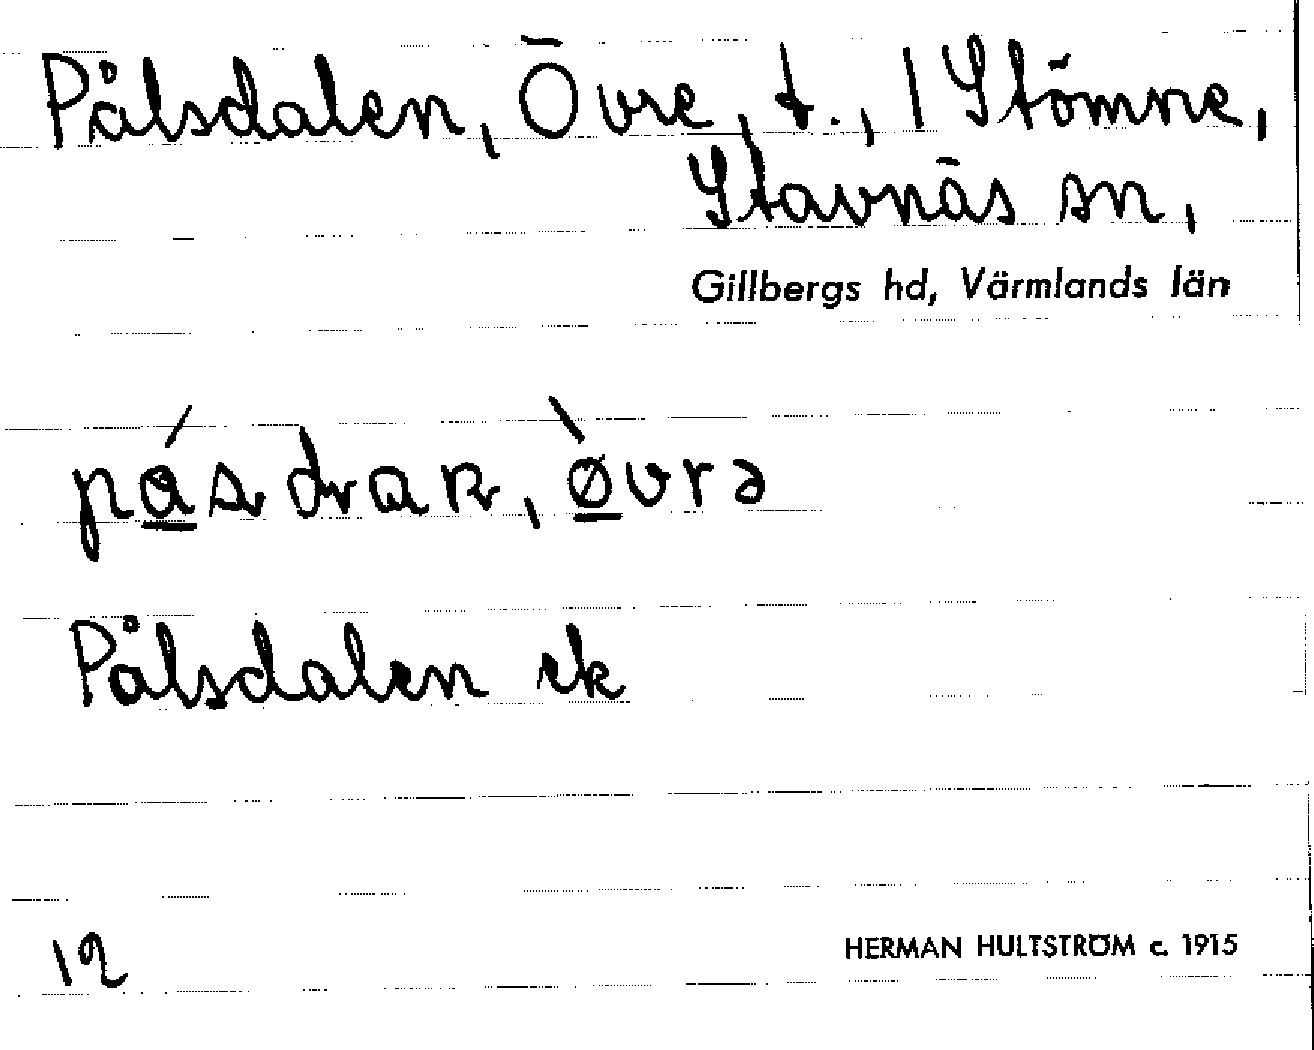 Pålsdalen, Övre, t., 1 Stömne,
Stavnäs sn,
Gillbergs hd, Värmlands län
Pålsdalen ek
12
HERMAN HULTSTRÖM c. 1915